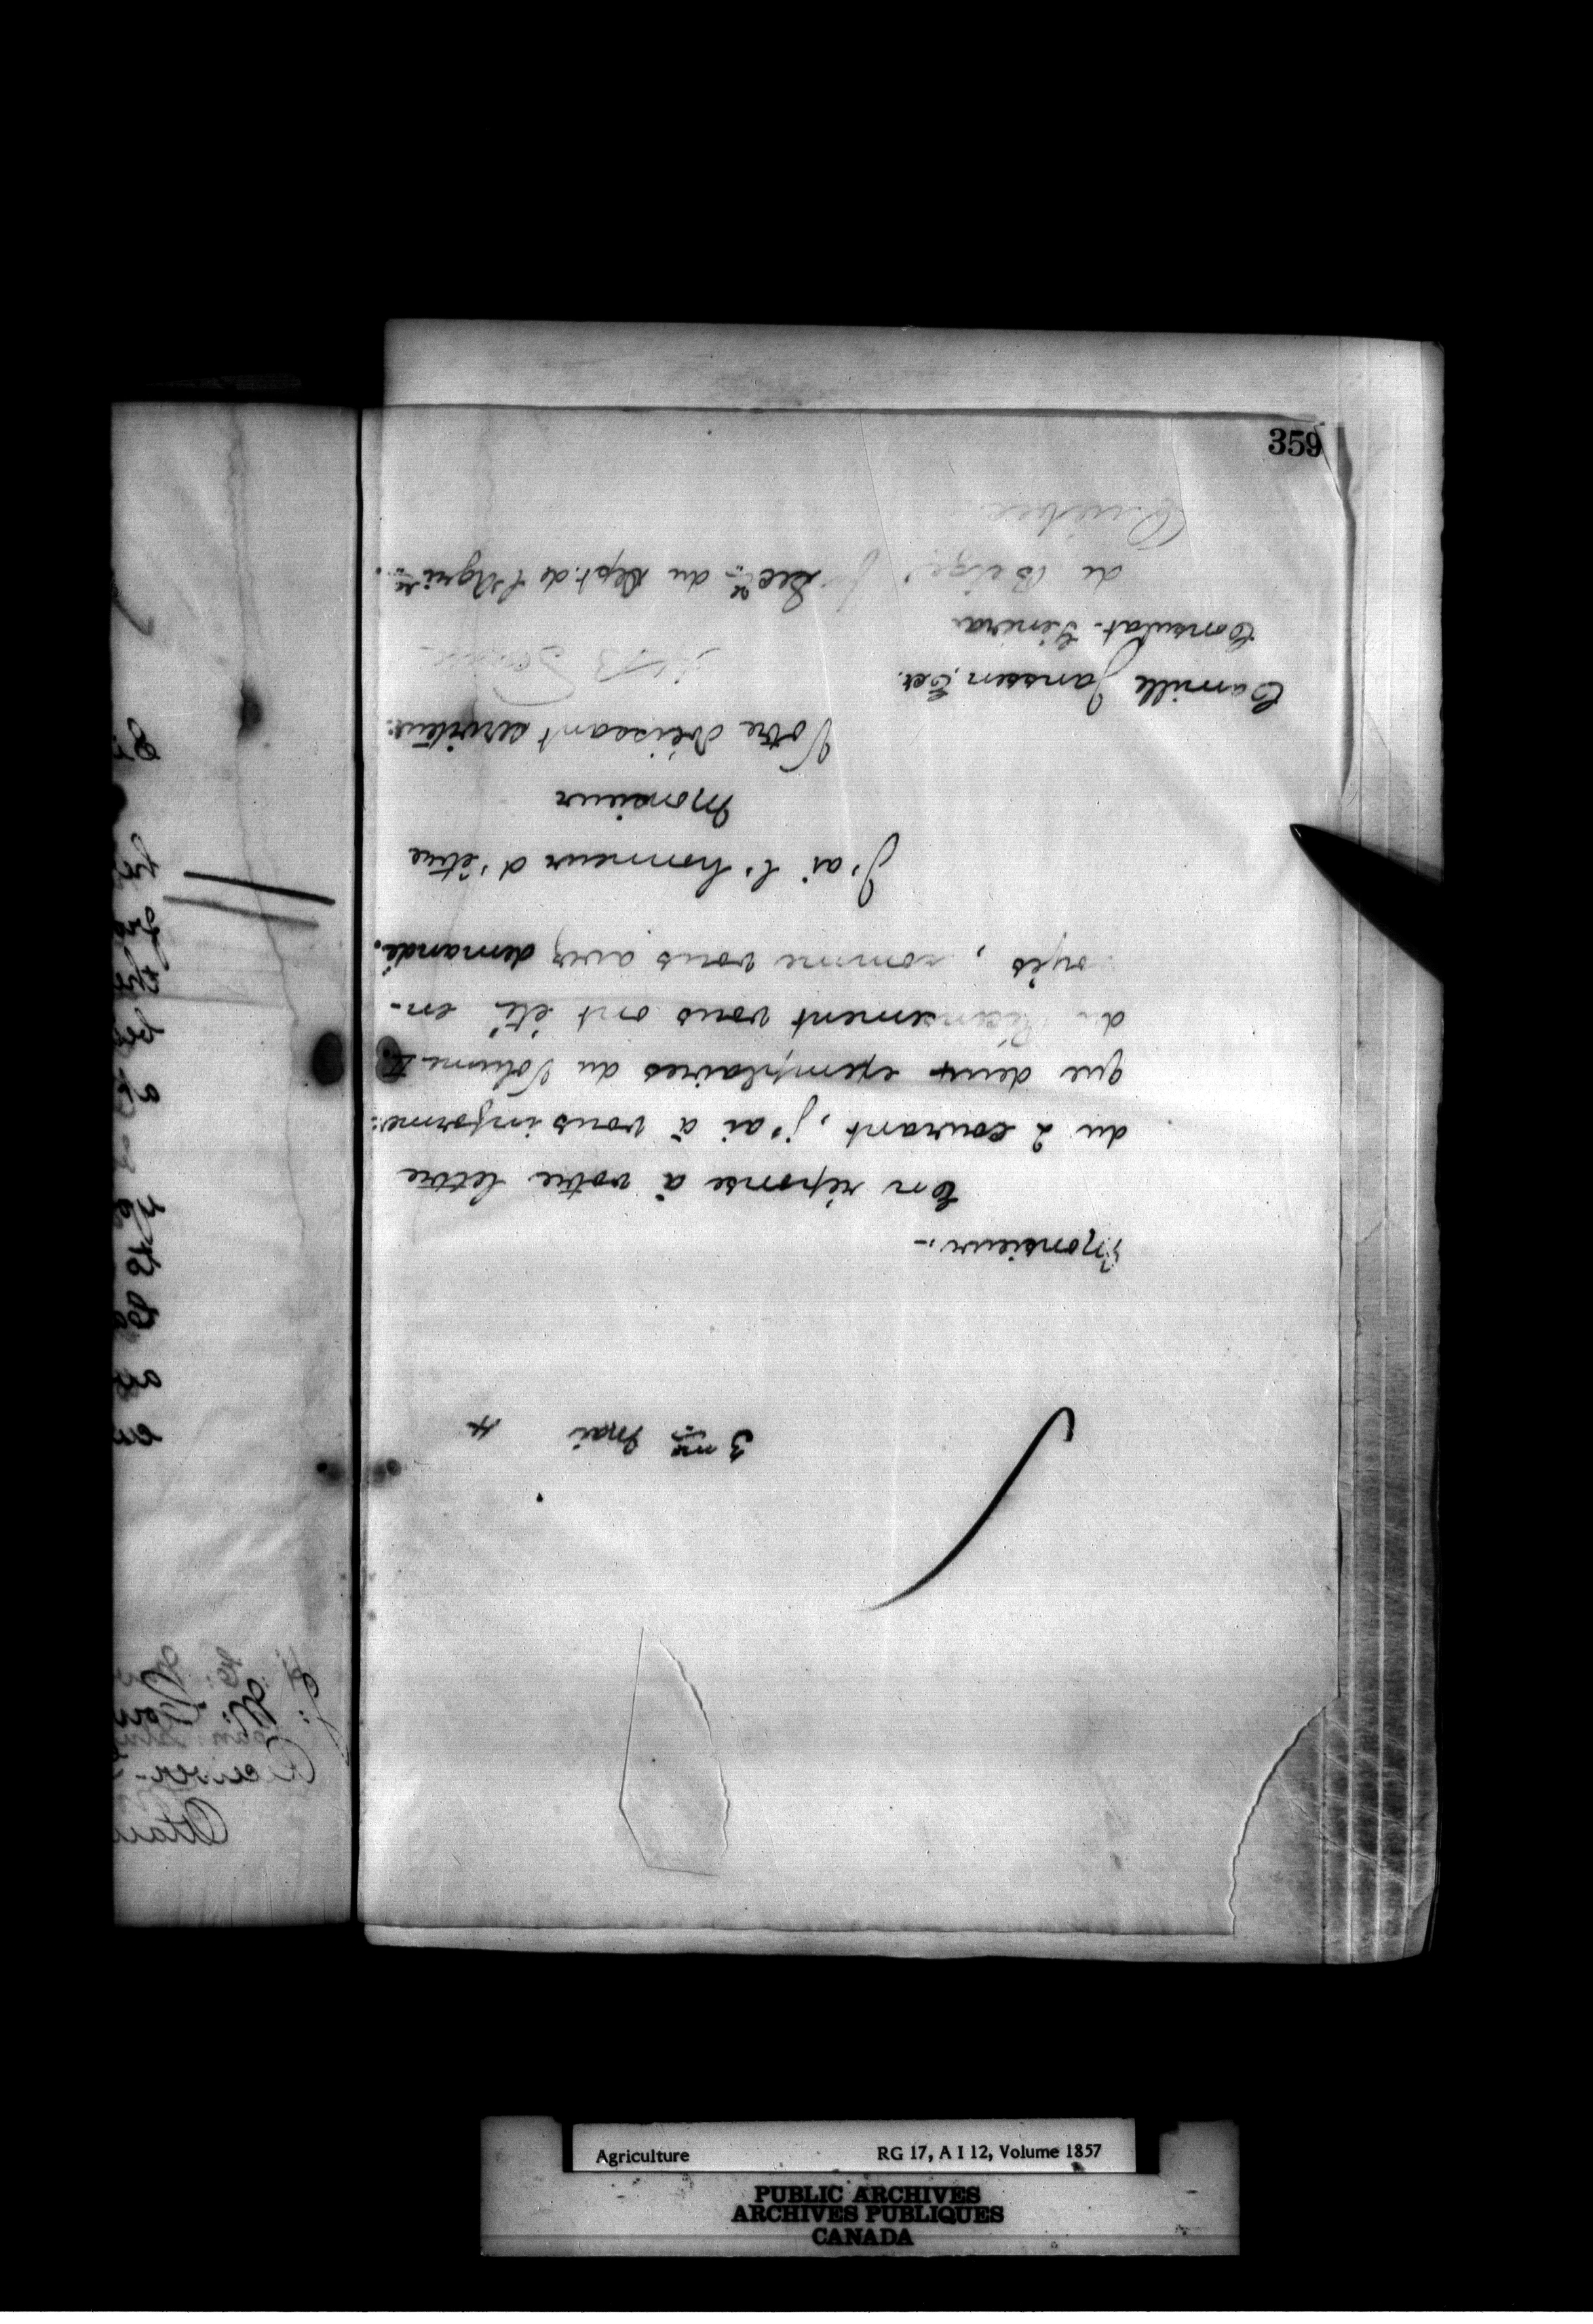 359
3me Mai 4
Monsieur.-
En réponse à votre lettre
du 2 courant, j'ai à vous informer
que deux exemplaires du Volume II
du Récensement vous ont été en-
voyés, comme vous avez demandé.
J'ai l'honneur d'être
Monsieur
Votre obéissant serviteur.
Camille Janssen, Ecr.
Consulat-Général
de Belge
Secre. du Dept. de l'Agrire.
Québec
Agriculture RG 17, A I 12, Volume 1857
PUBLIC ARCHIVES
ARCHIVES PUBLIQUES
CANADA